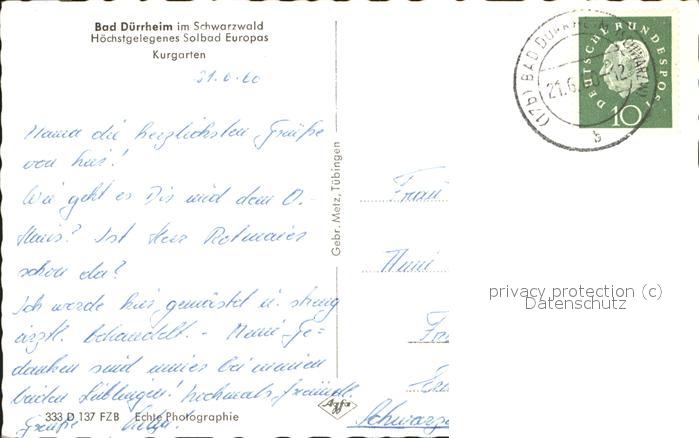 Bad Dürrheim im Schwarzwald
Höchstgelegenes Solbad Europas
Kurgarten
21.6.60
Mama die herzlichsten Grüße
von hier!
Wie geht es Dir mit dem O.-
Haus? Ist Herr Rotmaier
schon da?
Ich werde hier gemästet u. streng
ärztl. behandelt. - Meine Ge-
danken sind immer bei meinen
beiden Lieblingen! Nochmals
Grüße
333 D 137 FZB Echte Photographie
Gebr. Metz, Tübingen
Agfa
Frau
Schwarz
DEUTSCHE BUNDESPOST
10
(17b) BAD DÜRRHEIM (SCHWARZW)
21.6.60
b
privacy protection (c)
Datenschutz